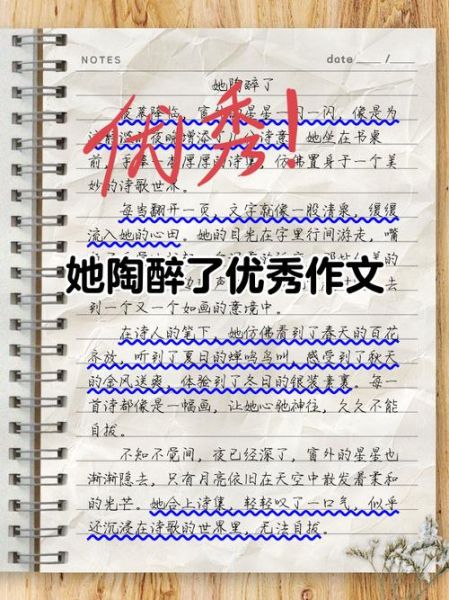 NOTES date ___ /___
她陶醉了
优秀!
夜幕降临，窗外的星星一闪一闪，像是为
夜晚增添了几分诗意。她坐在书桌
前，手捧一本厚厚的诗集，仿佛置身于一个美
妙的诗歌世界。
每当翻开一页，文字就像一股清泉，缓缓
流入她的心田。她的目光在字里行间游走，嘴
她陶醉了优秀作文
声 去
到一个又一个如画的意境中。
在诗人的笔下，她仿佛看到了春天的百花
齐放，听到了夏日的蝉鸣鸟叫，感受到了秋天
的金风送爽，体验到了冬日的银装素裹。每一
首诗都像是一幅画，让她心驰神往，久久不能
自拔。
不知不觉间，夜已经深了，窗外的星星也
渐渐隐去，只有月亮依旧在天空中散发着柔和
的光芒。她合上诗集，轻轻叹了一口气，似乎
还沉浸在诗歌的世界里，无法自拔。